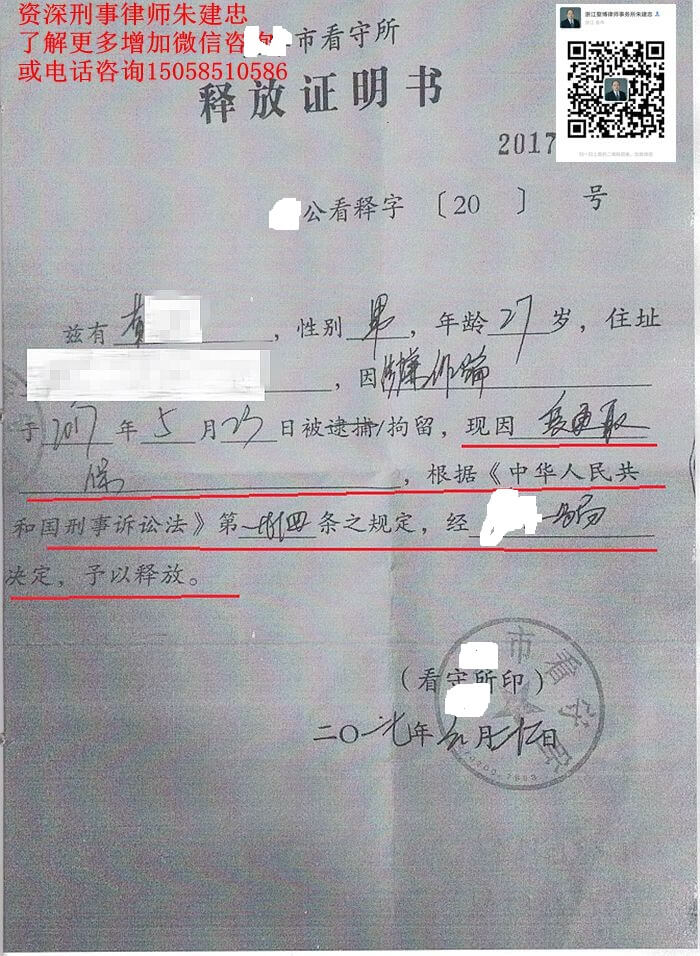 资深刑事律师朱建忠
了解更多增加微信咨询
或电话咨询15058510586
浙江靖博律师事务所朱建忠
市看守所
释放证明书
2017
公看释字〔20 〕 号
兹有黄,性别男,年龄27岁,住址
,因涉嫌诈骗
于2017年5月23日被逮捕/拘留,现因变更取
保,根据《中华人民共
和国刑事诉讼法》第条之规定,经
决定,予以释放。
市看守所
(看守所印)
二〇一七年六月日